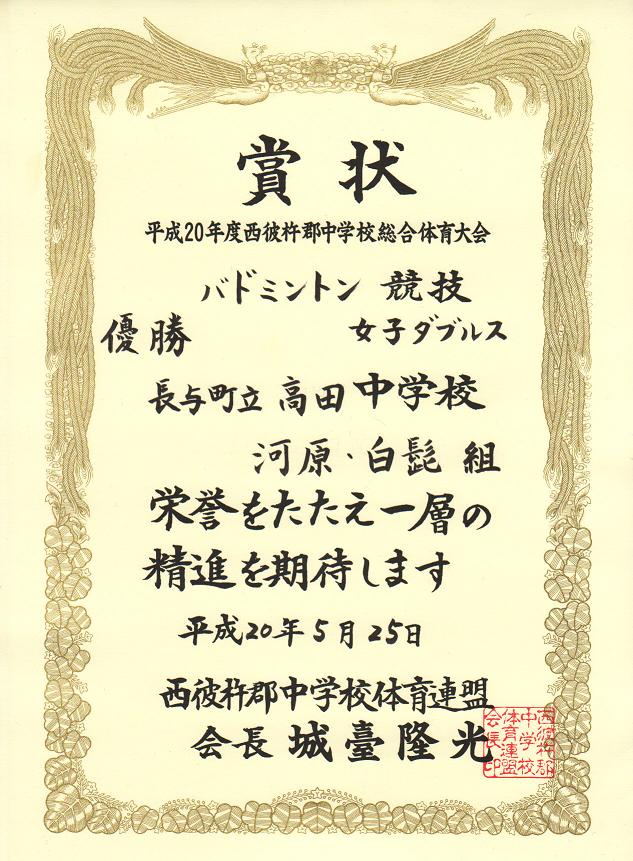 賞状
平成20年度西彼杵郡中学校総合体育大会
バドミントン 競技
優勝 女子ダブルス
長与町立 高田 中学校
河原・白髭 組
栄誉をたたえ一層の
精進を期待します
平成20年5月25日
西彼杵郡中学校体育連盟
会長 城臺隆光
西彼杵郡
中学校
体育連盟
会長印